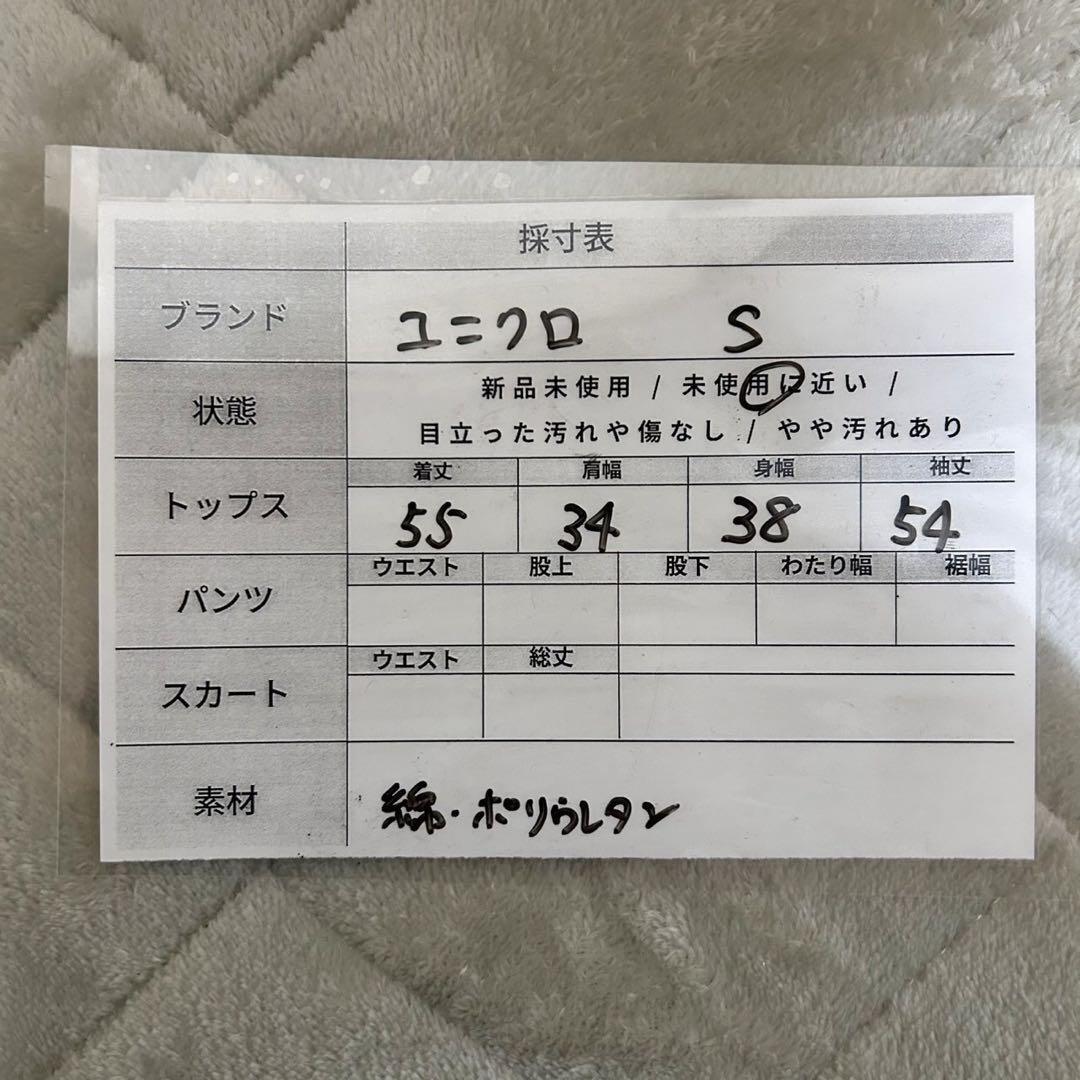 採寸表
ブランド ユニクロ S
状態 新品未使用 / 未使用に近い /
目立った汚れや傷なし / やや汚れあり
着丈 肩幅 身幅 袖丈
トップス 55 34 38 54
ウエスト 股上 股下 わたり幅 裾幅
パンツ
ウエスト 総丈
スカート
素材 綿・ポリウレタン